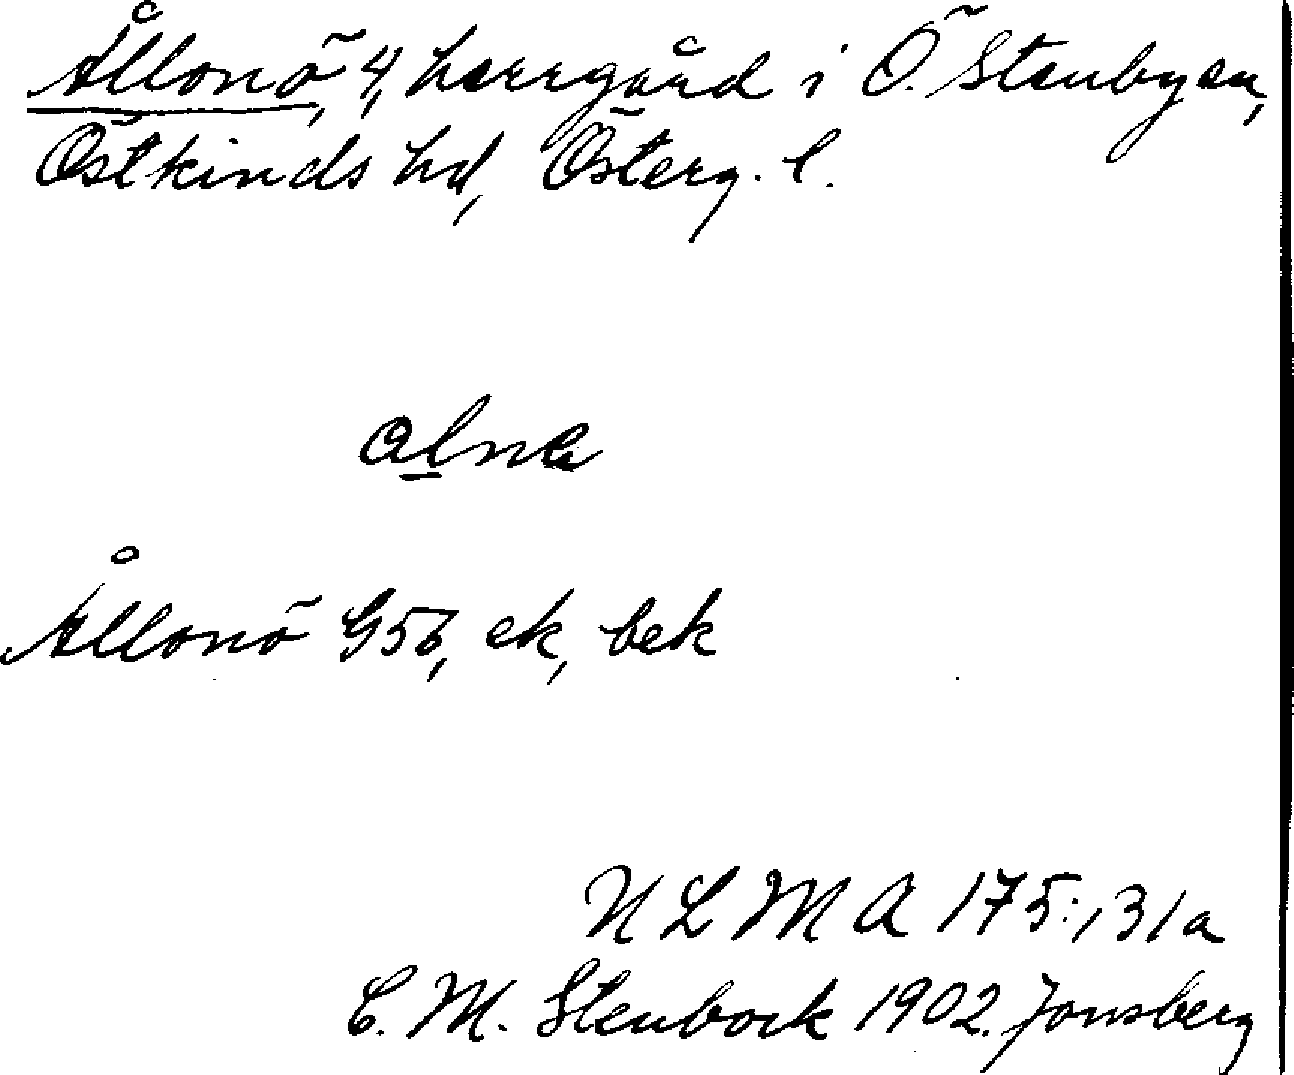 Ållonö, 4, herrgård i Ö. Stenby sn,
Östkinds hd, Österg. l.
alnə
Ållonö G56, ek, bek
N L M A 175:131a
C. M. Stenbock 1902. Jonsberg